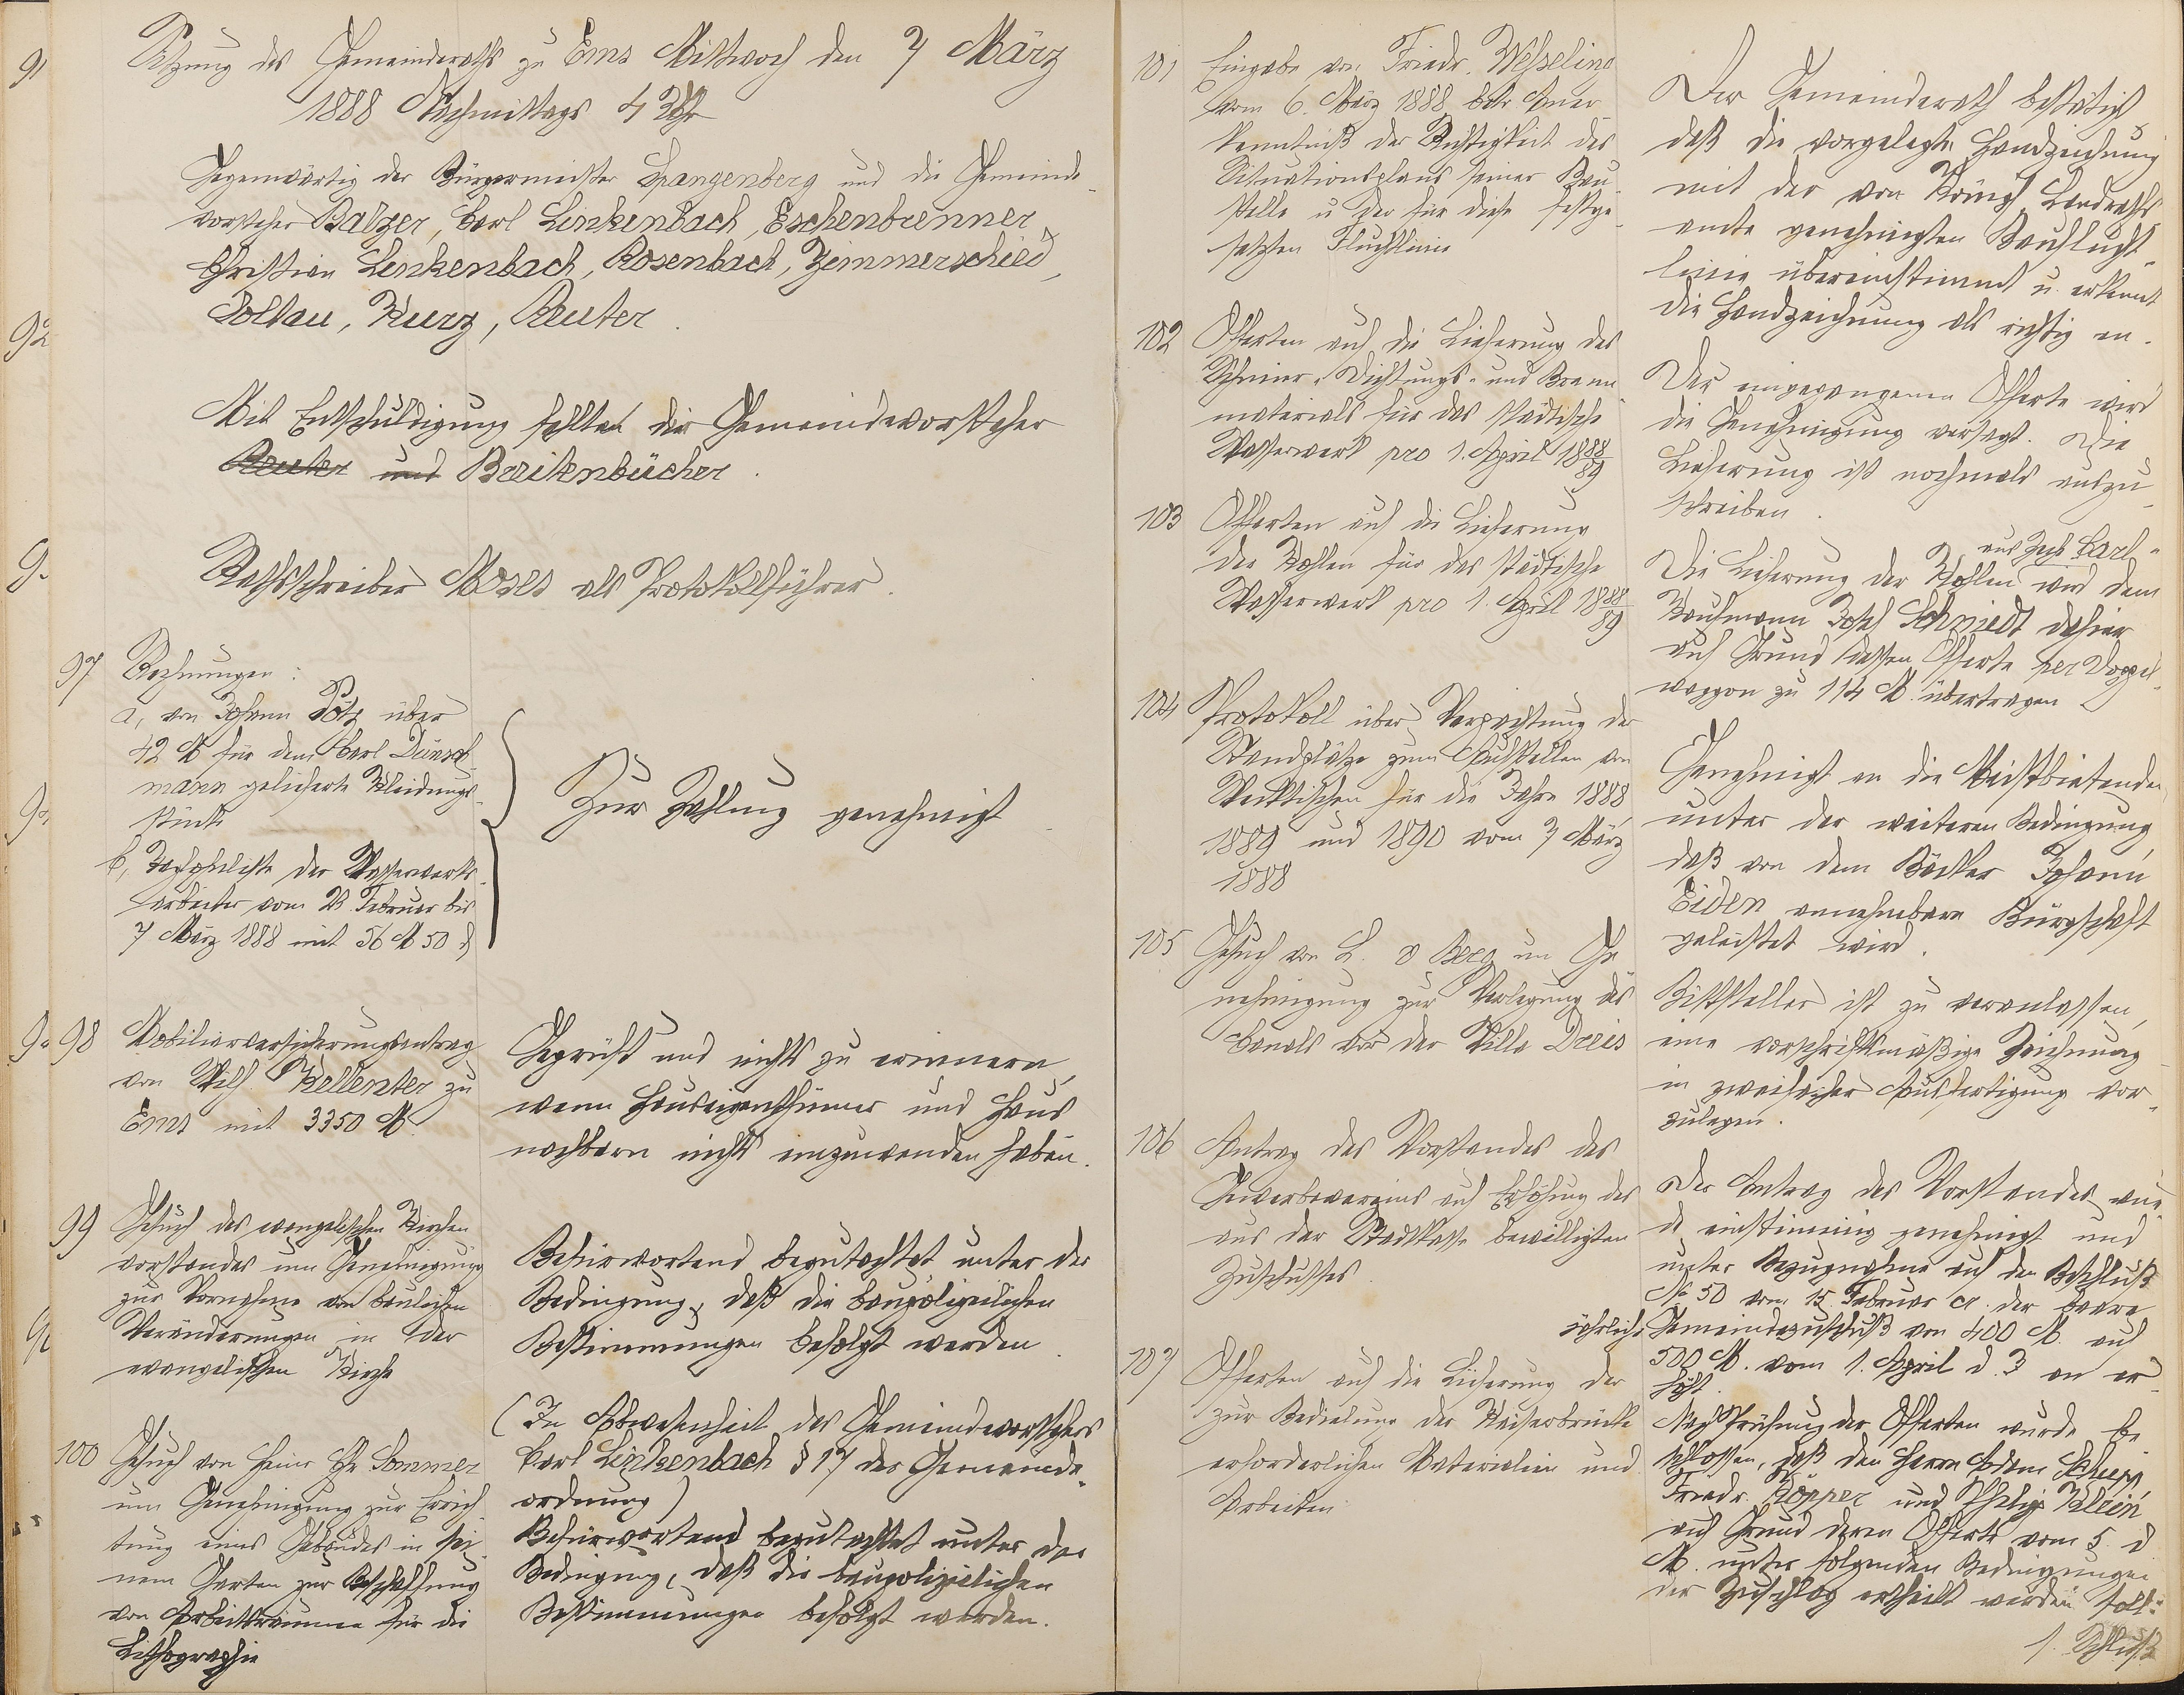 Sitzung des Gemeinderaths zu Ems Mittwoch den 7 März
1888 Nachmittags 4 Uhr
Gegenwärtig der Bürgermeister Spangenberg und die Gemeinde-
vorsteher Balzer, Carl Linkenbach, Eschenbrenner,
Christian Linkenbach, Rosenbach, Zimmerschied,
Soltau, Kurz, Reuter.
Mit Entschuldigung fehlten die Gemeindevorsteher
Reuter und Breitenbücher.
Rathsschreiber Moses als Protokollführer.
97 Rechnungen:
a, von Johann Pötz über
42 M für dem Carl Dünsch-
mann gelieferte Kleidungs-
stücke
b, Tagebuchliste der Wasserwerks-
arbeiter vom 23 Februar bis
7 März 1888 mit 56 M 50 ₰
Zur Zahlung genehmigt
98 Mobiliarversicherungsantrag
von Wilh. Kaltenster zu
Ems mit 3350 M.
Geprüft und nichts zu erinnern,
wenn Hauseigenthümer und Haus-
nachbarn nichts einzuwenden haben.
99 Gesuch des evangelischen Kirchen-
vorstandes um Genehmigung
zur Vornahme von baulichen
Veränderungen in der
evangelischen Kirche
Befürwortend begutachtet unter der
Bedingung, daß die baupolizeilichen
Bestimmungen befolgt werden.
100 Gesuch von Heinr Chr Sommer
um Genehmigung zur Errich-
tung eines Gebäudes in sei-
nem Garten zur Beschaffung
von Arbeitsräumen für die
Lithographie
(In Abwesenheit des Gemeindevorstehers
Carl Linkenbach § 17 der Gemeinde-
ordnung)
Befürwortend begutachtet unter der
Bedingung, daß die baupolizeilichen
Bestimmungen befolgt werden.
101 Eingabe von Friedr. Wesseling
vom 6. März 1888 betr. Aner-
kenntniß der Richtigkeit des
Situationsplans seiner Bau-
stelle u der für diese festge-
setzten Fluchtlinie
Der Gemeinderath bestätigt
daß die vorgelegte Handzeichnung
mit der von Königl Landraths-
amte genehmigten Baufluch-
linie übereinstimmt u. erkennt
die Handzeichnung als richtig an.
102 Offerten auf die Lieferung des
Schmier-, Dichtungs- und Brenn-
materials für das städtische
Wasserwerk pro 1. April 1888/89
Der eingegangenen Offerte wird
die Genehmigung versagt. Die
Lieferung ist nochmals auszu-
schreiben.
103 Offerten auf die Lieferung
der Kohlen für das städtische
Wasserwerk pro 1. April 1888/89
aus Zeche Carl
Die Lieferung der Kohlen wird dem
Kaufmann Josef Schmidt dahier
auf Grund dessen Offerte per Doppel-
waggon zu 114 M. übertragen
104 Protokoll über Verpachtung der
Standplätze zum Aufstellen von
Markttischen für die Jahre 1888,
1889 und 1890 vom 7 März
1888
Genehmigt an die Meistbietenden,
unter der weiteren Bedingung,
daß von dem Bäcker Johann
Eiden annehmbare Bürgschaft
geleistet wird.
105 Gesuch von L. v Berg um Ge-
nehmigung zur Verlegung des
Canals vor der Villa Dreis
Bittsteller ist zu veranlassen,
eine vorschriftsmäßige Zeichnung
in zweifacher Ausfertigung vor-
zulegen.
106 Antrag des Vorstandes des
Gewerbevereins auf Erhöhung des
aus der Stadtkasse bewilligten
Zuschusses.
Der Antrag des Vorstandes wur-
de einstimmig genehmigt und
unter Bezugnahme auf den Beschluß
No 50 vom 15. Februar cr. der baare
jährliche Gemeindezuschuß von 400 M. auf
500 M. vom 1. April d. J an er-
höht.
107 Offerten auf die Lieferung der
zur Bedielung der Kaiserbrücke
erforderlichen Materialien und
Arbeiten
Nach Prüfung der Offerten wurde be-
schlossen, daß den Herrn Adam Schupp,
Friedr. Köpper und Philipp Klein
auf Grund deren Offerte vom 5. d
M. unter folgenden Bedingungen
der Zuschlag ertheilt werden soll:
1. Schluß